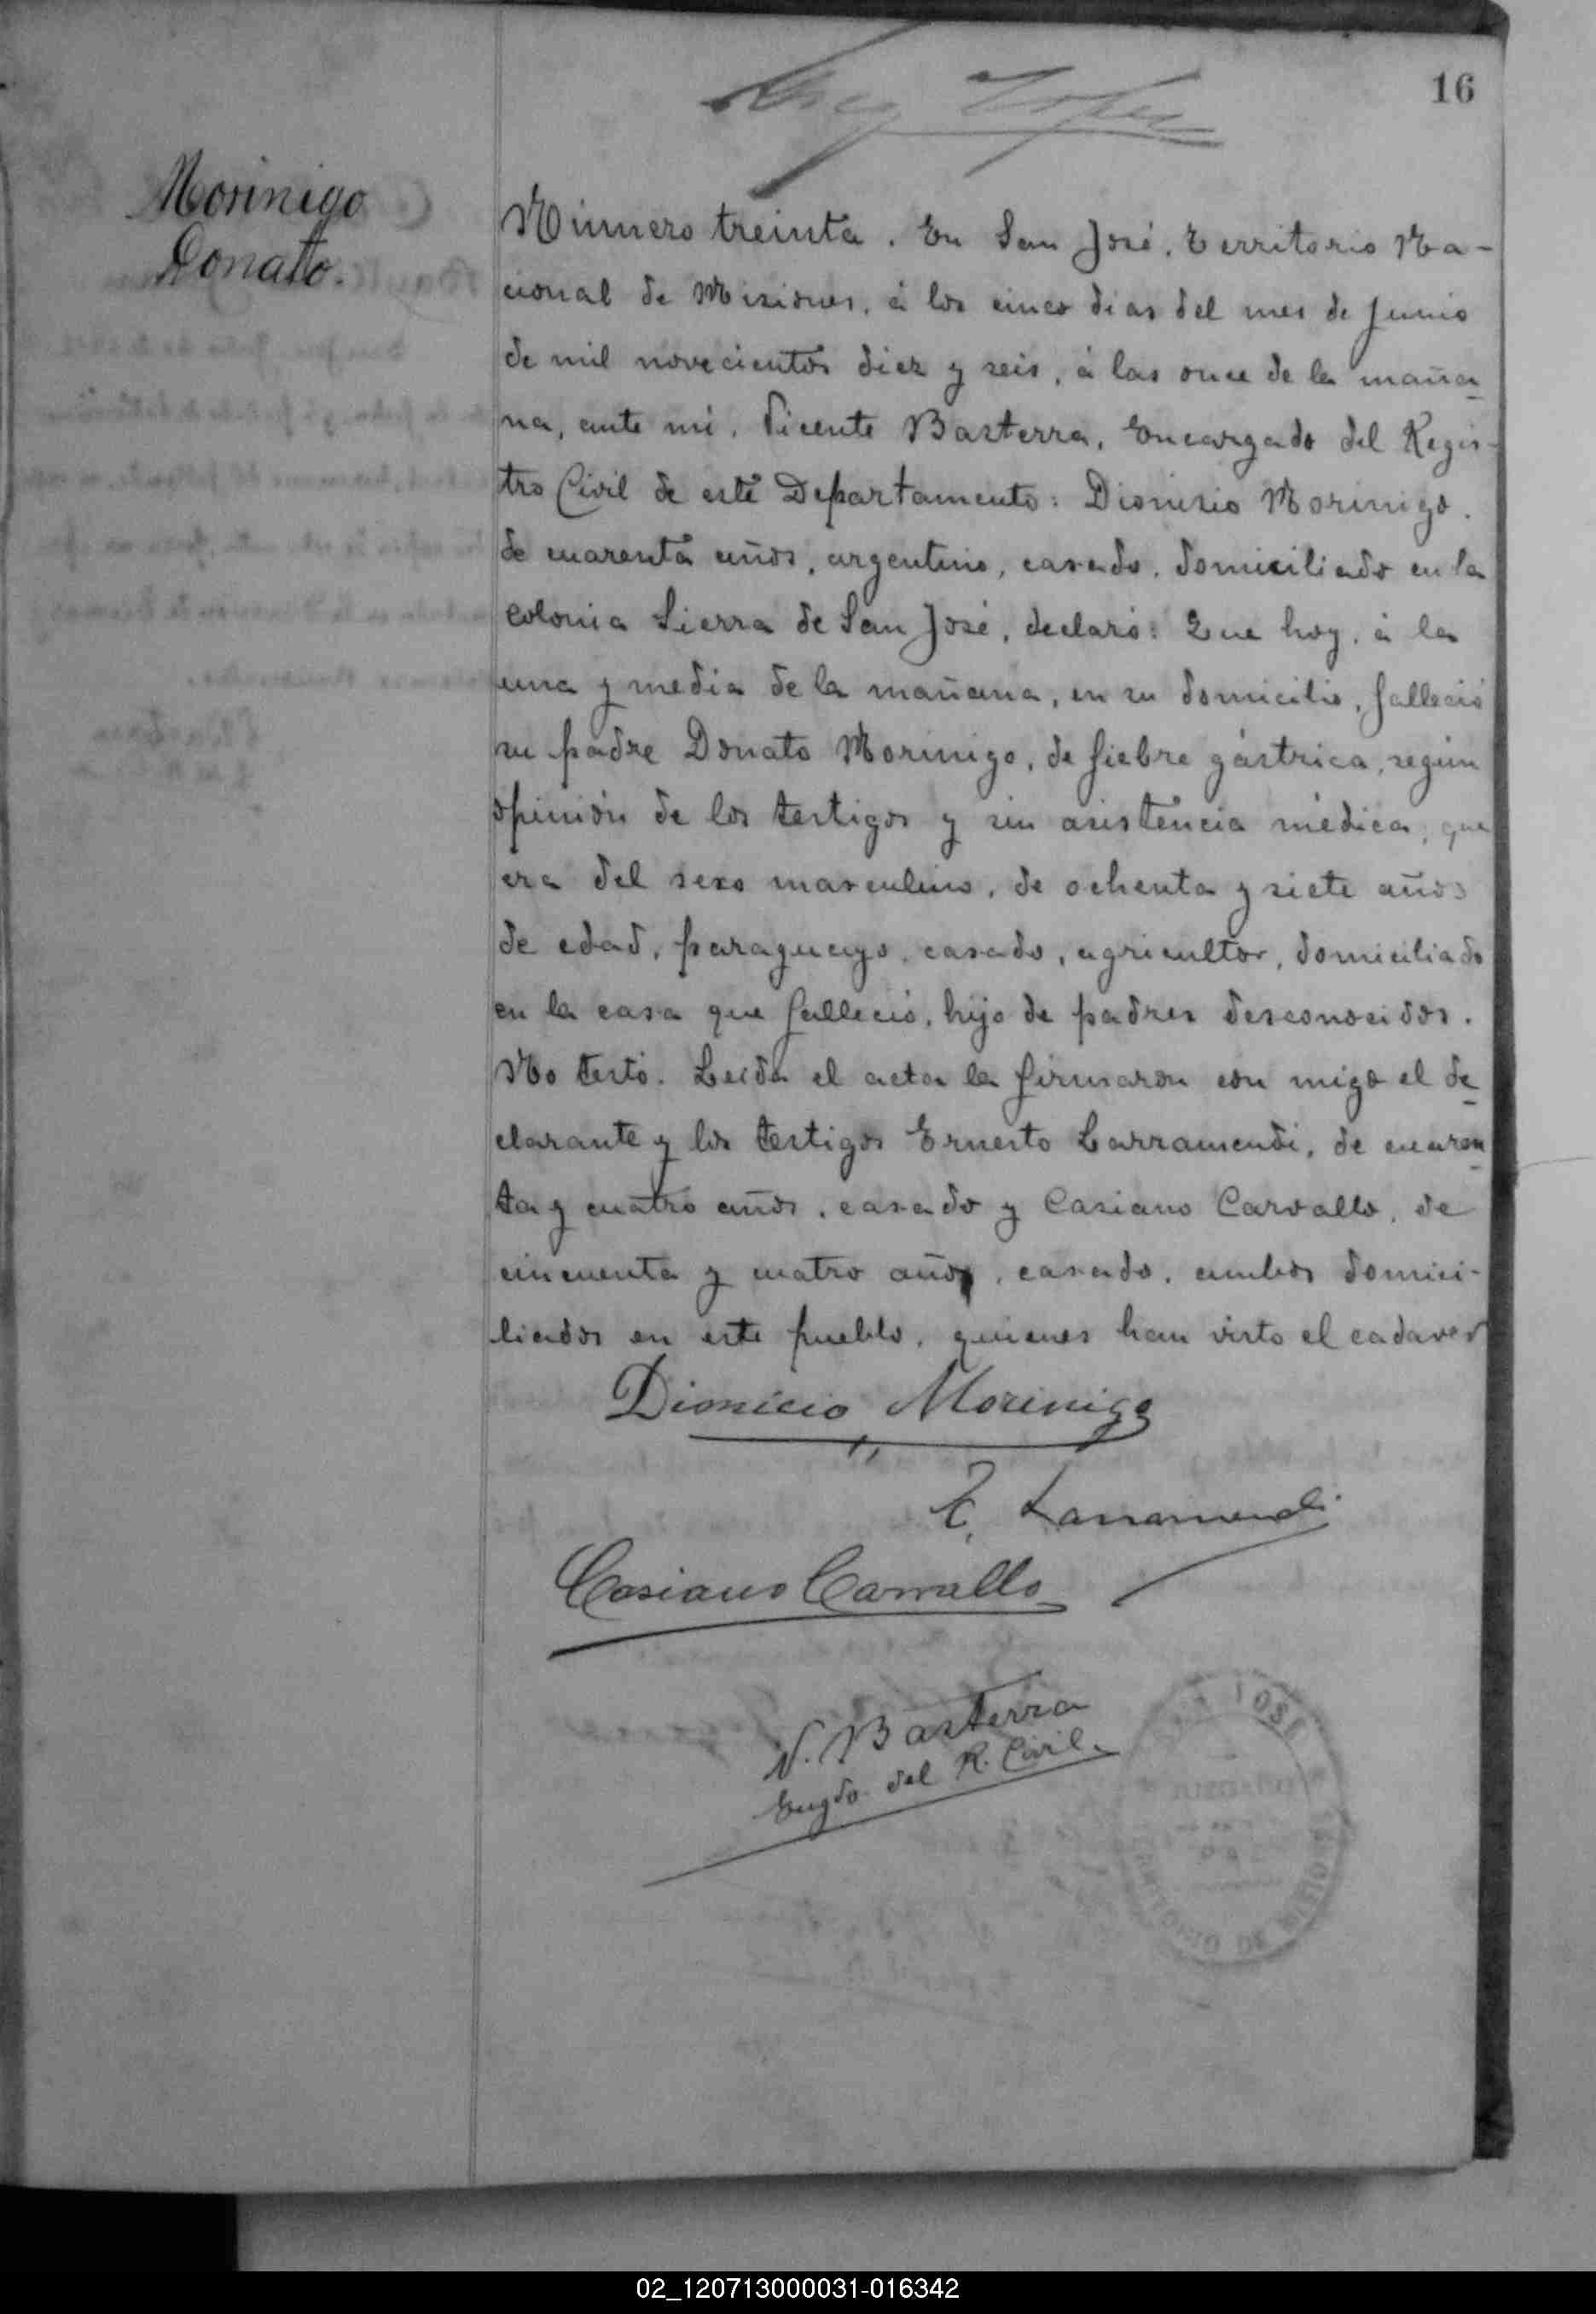 16
Morinigo
Donato.
Número treinta. En San José, Territorio Na-
cional de Misiones, á los cinco dias del mes de Junio
de mil novecientos diez y seis, á las once de la maña-
na, ante mí, Vicente Basterra, Encargado del Regis-
tro Civil de este Departamento: Dionisio Morinigo.
de cuarenta años, argentino, casado, domiciliado en la
Colonia Sierra de San José, declaró: Que hoy, á la
una y media de la mañana, en su domicilio, falleció
su padre Donato Morinigo, de fiebre gástrica, según
opinión de los testigos y sin asistencia médica, que
era del sexo masculino, de ochenta y siete años
de edad, paraguayo, casado, agricultor, domiciliado
en la casa que falleció, hijo de padres desconocidos.
No testó. Leida el acta la firmaron con migo el de-
clarante y los testigos Ernesto Larramendi, de cuaren-
ta y cuatro años, casado y Casiano Carvallo, de
cincuenta y cuatro años, casado, ambos domici-
liados en este pueblo, quienes han visto el cadaver
Dionicio Morinigo
E. Larramendi
Casiano Carvallo
V. Basterra
Engdo. del R. Civil.
JOSE
02_120713000031-016342